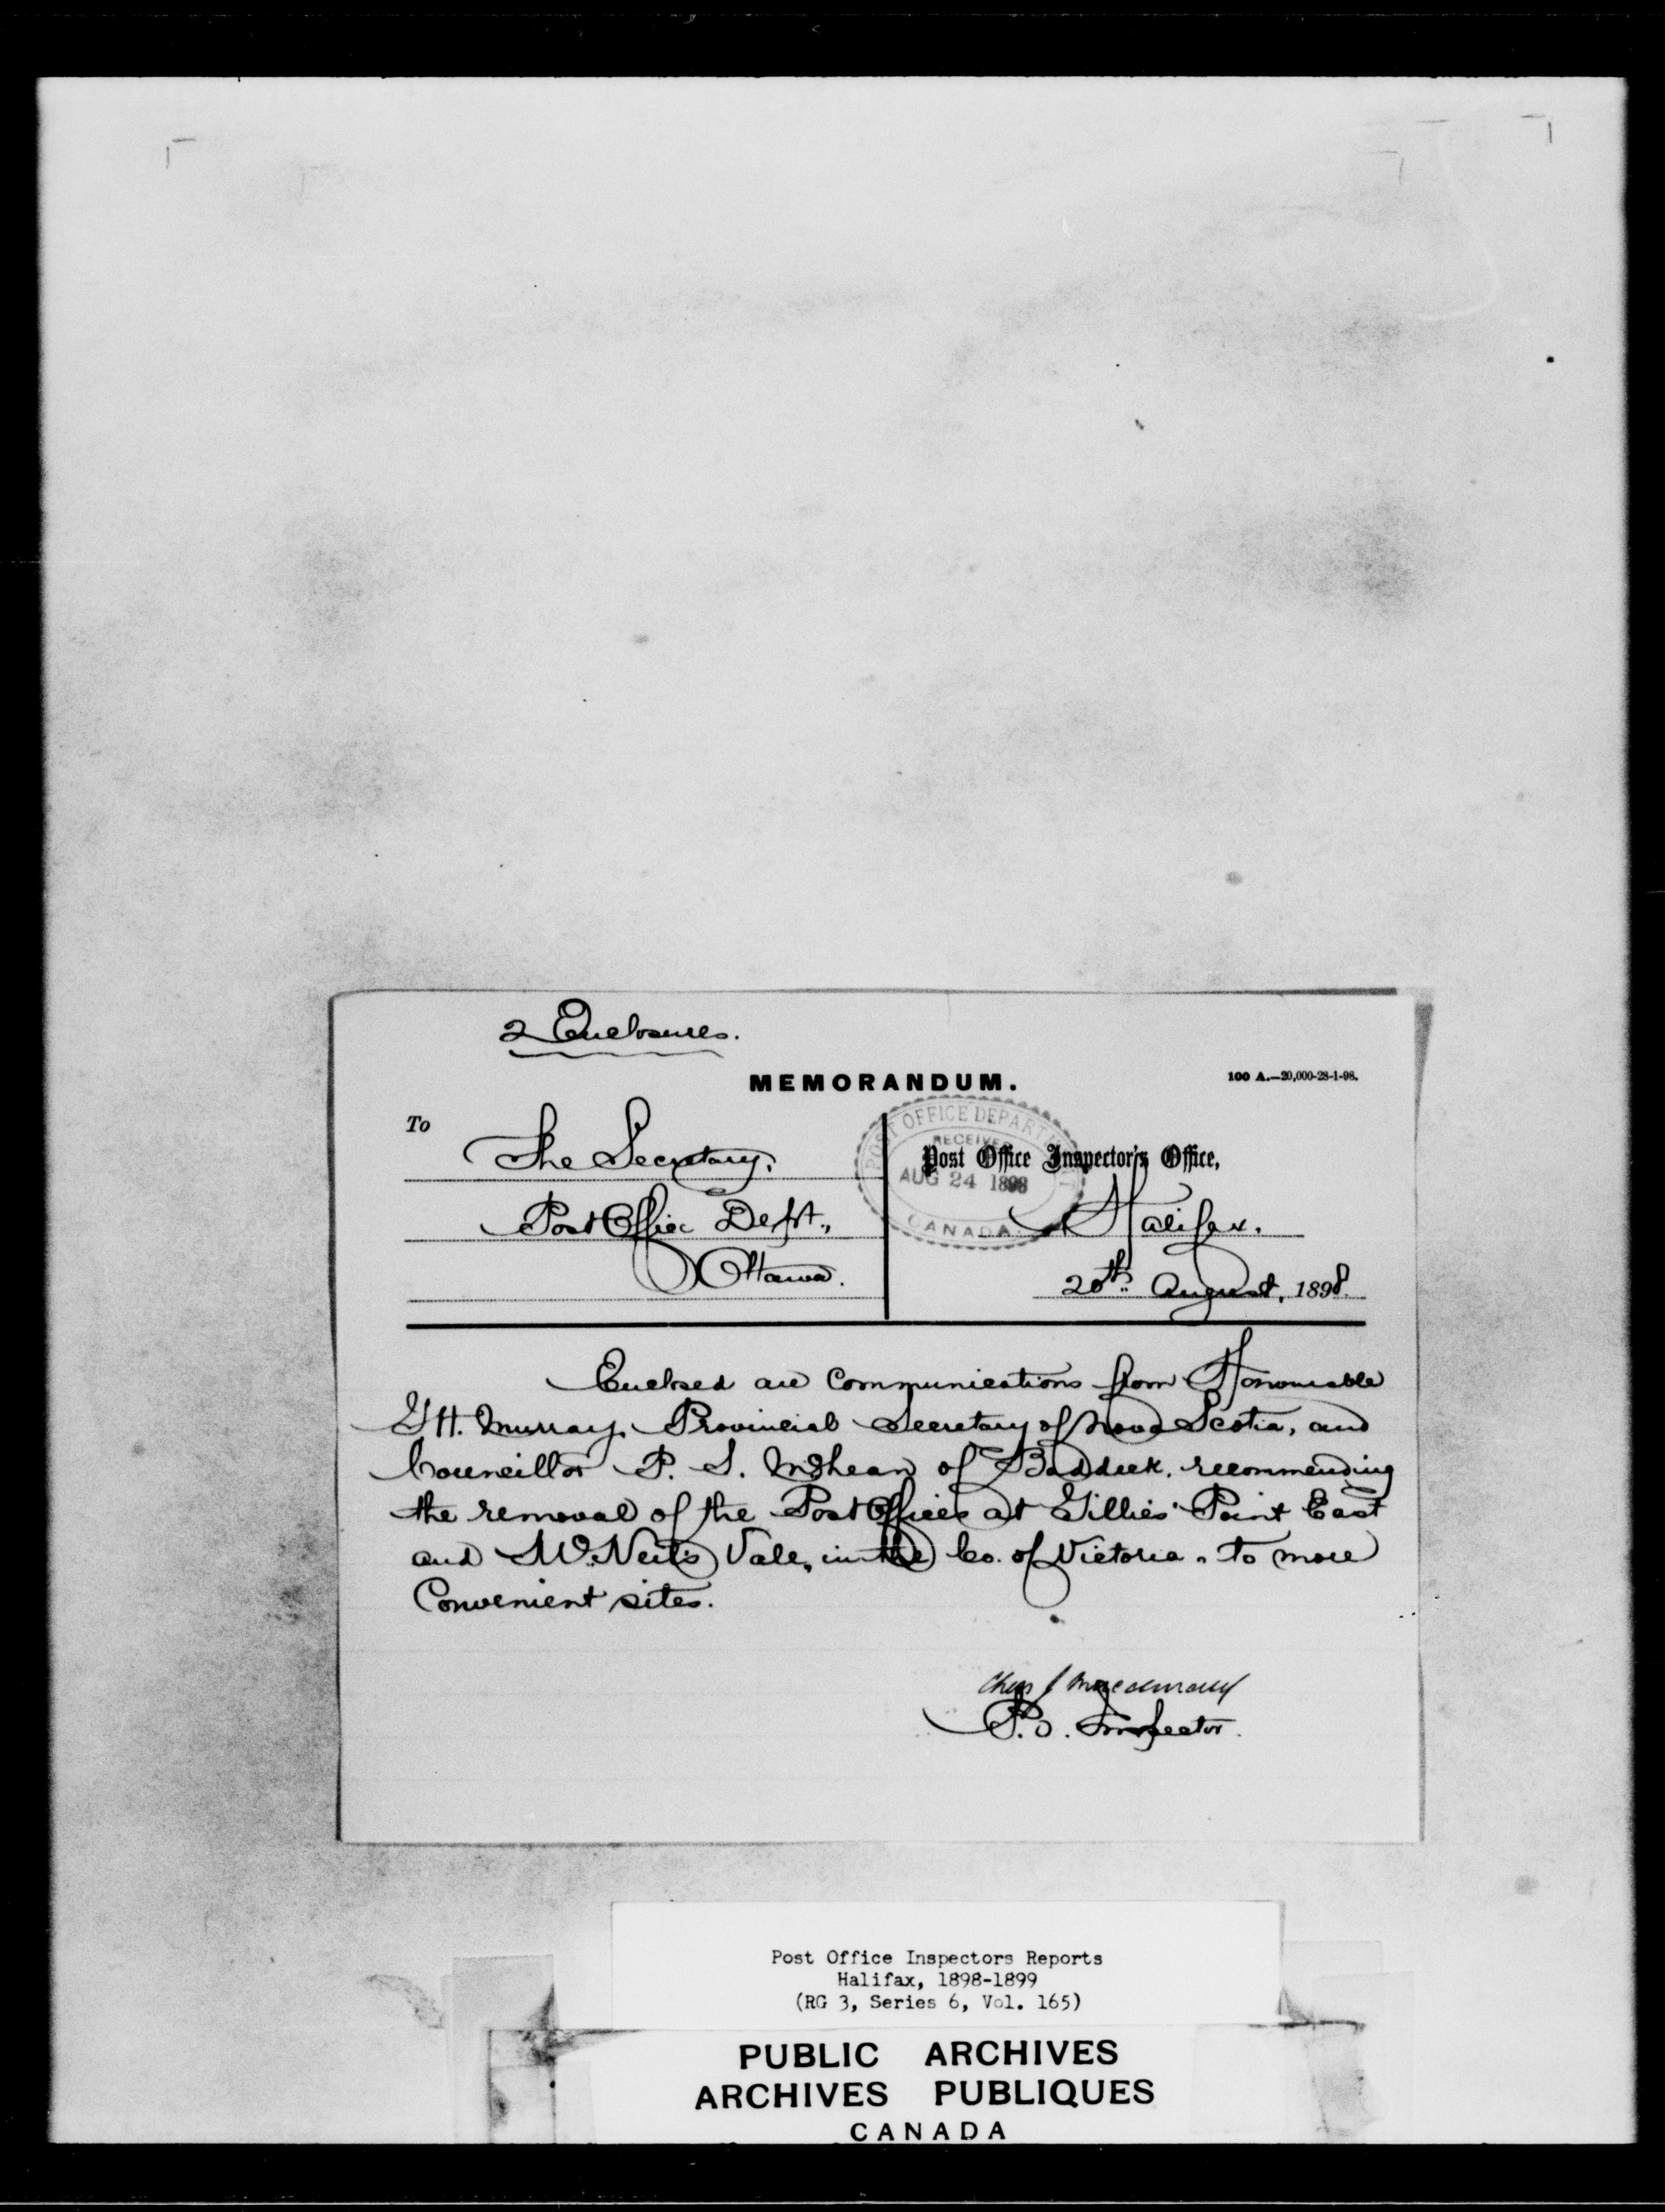 2 Enclosures.
MEMORANDUM.
100 A.—20,000-28-1-98.
To
The Secretary,
Post Office Dept.,
Ottawa.
POST OFFICE DEPARTMENT
RECEIVED
AUG 24 1898
CANADA
Post Office Inspector's Office,
Halifax.
20th August, 1898.
Enclosed are Communications from Honourable
G H. Murray, Provincial Secretary of Nova Scotia, and
Councillor P. S. McLean of Baddeck, recommending
the removal of the Post Offices at Gillies' Point East
and McNeil's Vale, in the Co. of Victoria, to more
Convenient sites.
Chas J Macdonald
P.O. Inspector.
Post Office Inspectors Reports
Halifax, 1898-1899
(RG 3, Series 6, Vol. 165)
PUBLIC ARCHIVES
ARCHIVES PUBLIQUES
CANADA